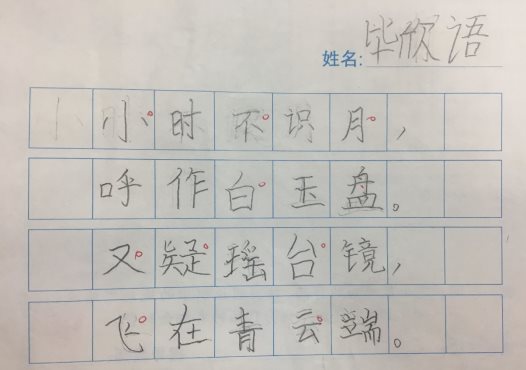 姓名: 毕欣语
小小时不识月，
呼作白玉盘。
又疑瑶台镜，
飞在青云端。